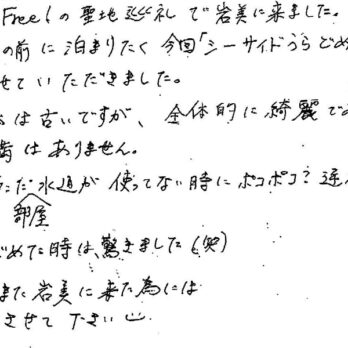 Free!の聖地巡礼で岩美に来ました。
の前に泊まりたく今回「シーサイドうらどめ
せていただきました。
は古いですが、全体的に綺麗で
はありません。
ただ水道が使ってない時にポコポコ?
部屋
めた時は、驚きました(笑)
また岩美に来た為には
させて下さい